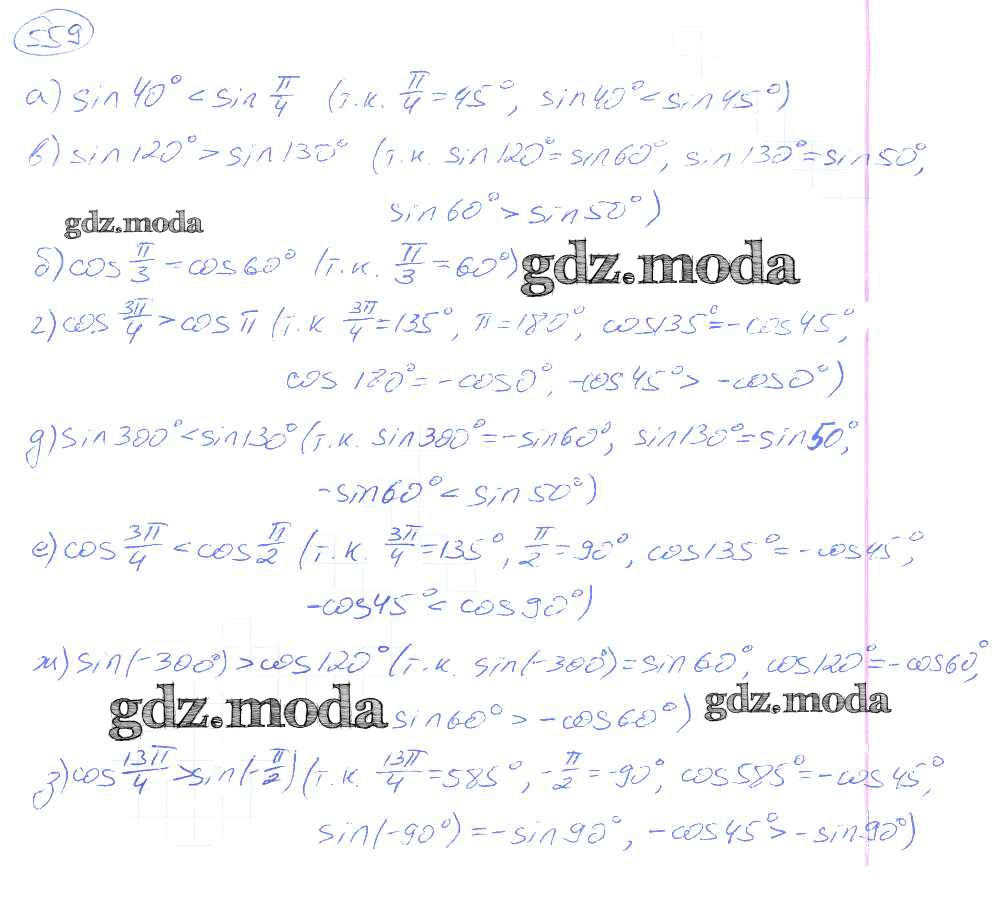 559
а) sin 40° < sin π/4 (т.к. π/4 = 45°, sin 40° < sin 45°)
в) sin 120° > sin 130° (т.к. sin 120° = sin 60°, sin 130° = sin 50°,
sin 60° > sin 50°)
gdz.moda
б) cos π/3 = cos 60° (т.к. π/3 = 60°)
gdz.moda
г) cos 3π/4 > cos π (т.к 3π/4 = 135°, π = 180°, cos 135° = -cos 45°,
cos 180° = -cos 0°, -cos 45° > -cos 0°)
д) sin 300° < sin 130° (т.к. sin 300° = -sin 60°, sin 130° = sin 50°,
-sin 60° < sin 50°)
е) cos 3π/4 < cos π/2 (т.к. 3π/4 = 135°, π/2 = 90°, cos 135° = -cos 45°,
-cos 45° < cos 90°)
ж) sin(-300°) > cos 120° (т.к. sin(-300°) = sin 60°, cos 120° = -cos 60°,
gdz.moda
sin 60° > -cos 60°)
gdz.moda
з) cos 13π/4 > sin(-π/2) (т.к. 13π/4 = 585°, -π/2 = -90°, cos 585° = -cos 45°,
sin(-90°) = -sin 90°, -cos 45° > -sin 90°)